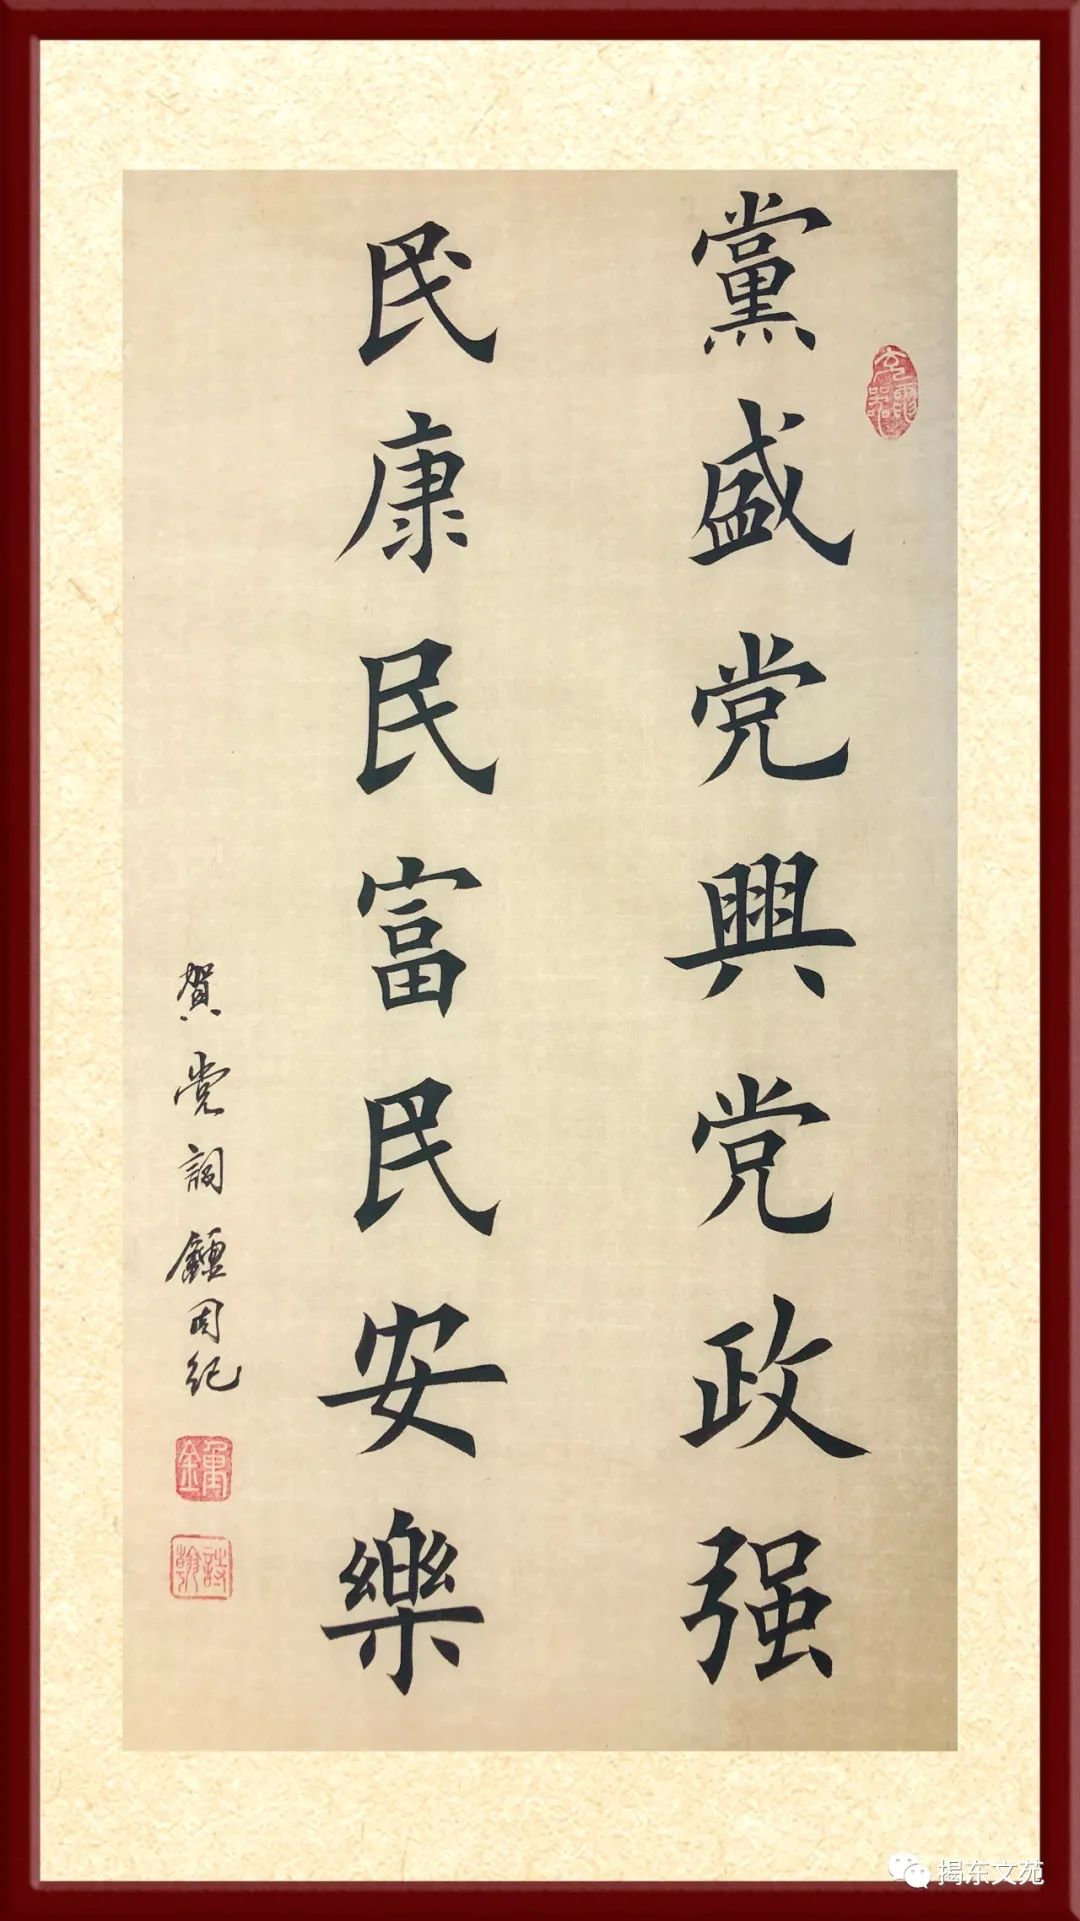 黨盛党興党政强
民康民富民安樂
賀党詞鍾国紀
揭东文苑